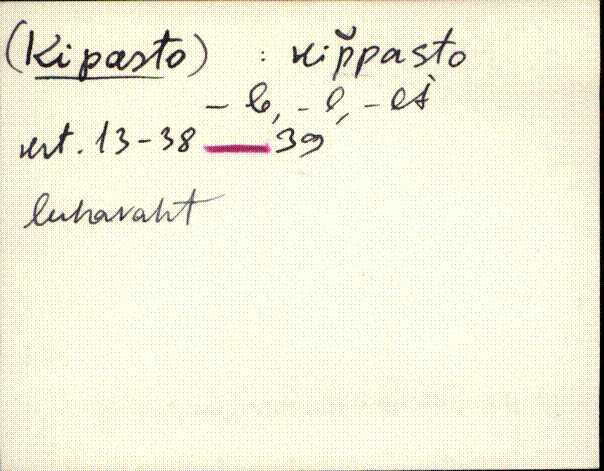 (Kipasto) : kip̆pasto
- le, - l, - lt
vrt. 13-38 — 39
luhavaht